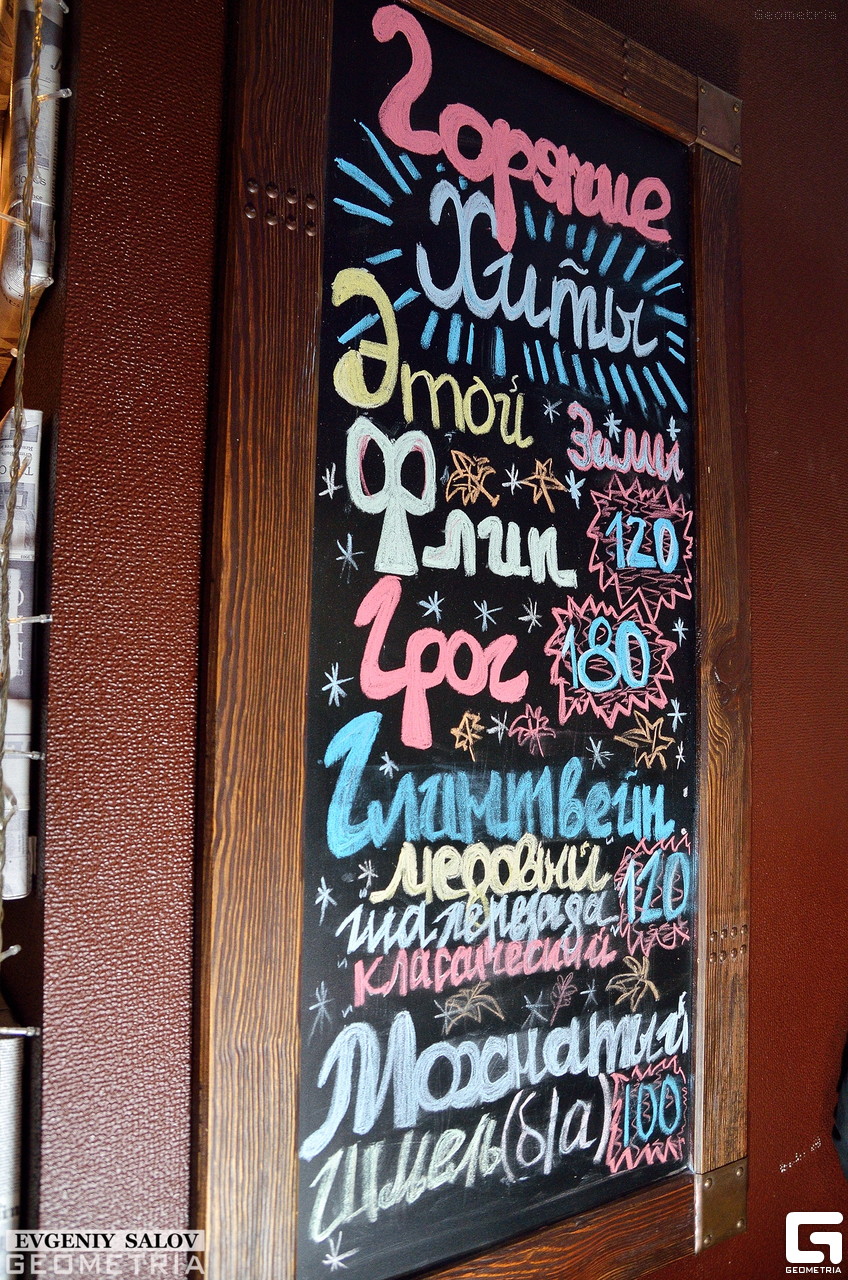 Geometria
Горячие
Хиты
Этой
Зимы
Флип 120
Грог 180
Глинтвейн
медовый 120
шахерезада
классический
Мохнатый
Шмель (б/а) 100
EVGENIY SALOV
GEOMETRIA
GEOMETRIA